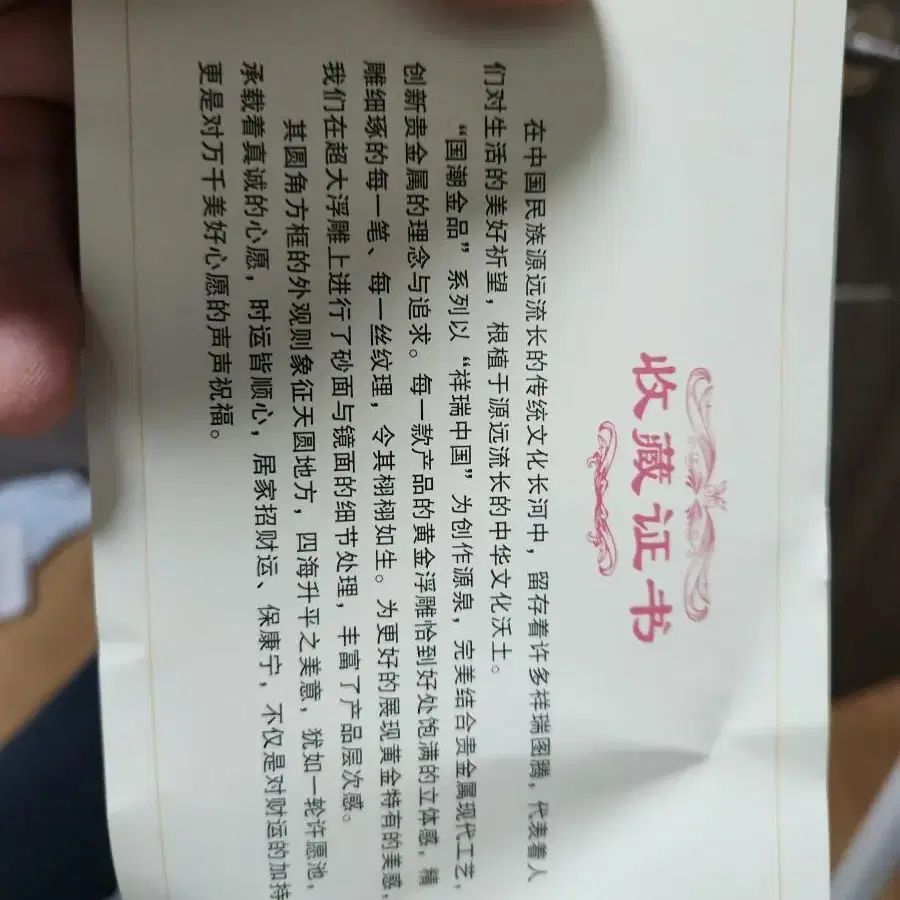 收藏证书
在中国民族源远流长的传统文化长河中，留存着许多祥瑞图腾，代表着人
们对生活的美好祈望，根植于源远流长的中华文化沃土。
“国潮金品”系列以“祥瑞中国”为创作源泉，完美结合贵金属现代工艺，
创新贵金属的理念与追求。每一款产品的黄金浮雕恰到好处饱满的立体感，精
雕细琢的每一笔、每一丝纹理，令其栩栩如生。为更好的展现黄金特有的美感，
我们在超大浮雕上进行了砂面与镜面的细节处理，丰富了产品层次感。
其圆角方框的外观则象征天圆地方，四海升平之美意，犹如一轮许愿池，
承载着真诚的心愿，时运皆顺心，居家招财运、保康宁，不仅是对财运的加持
更是对万千美好心愿的声声祝福。